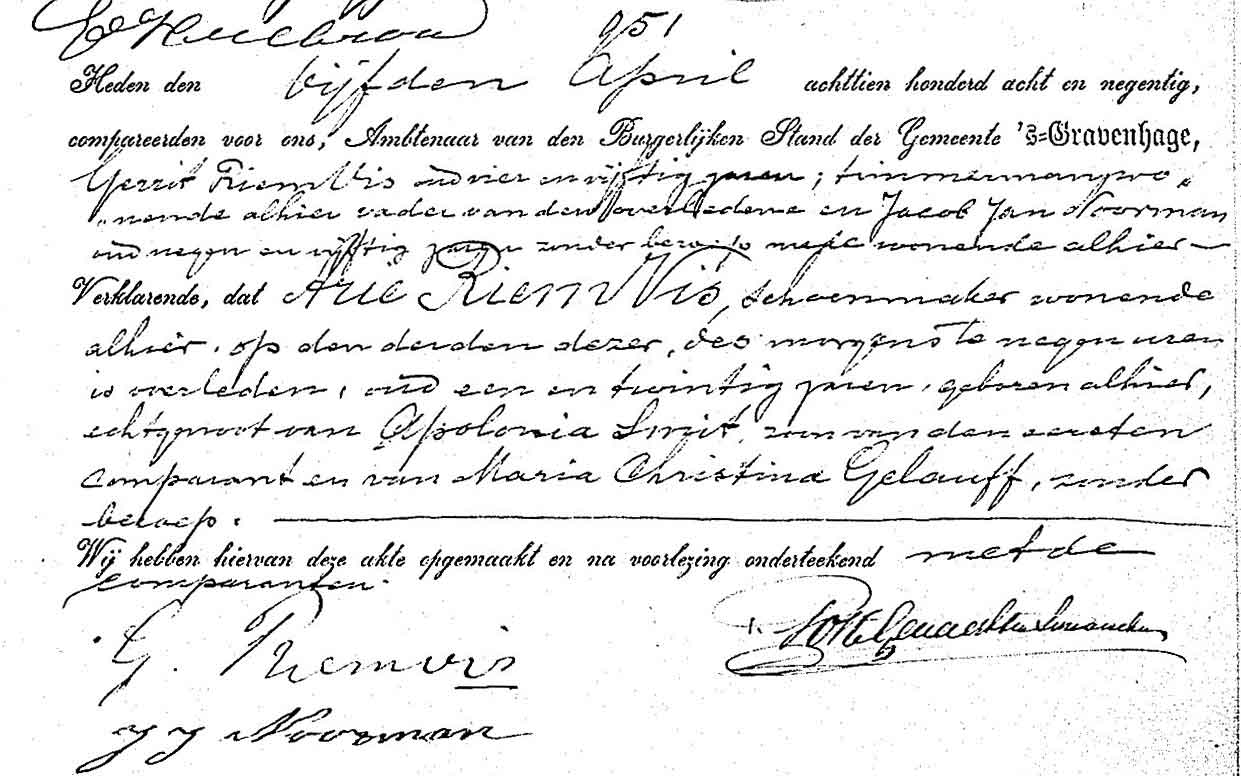 951
Heden den vijfden April achttien honderd acht en negentig,
compareerden voor ons, Ambtenaar van den Burgerlijken Stand der Gemeente 's=Gravenhage,
Gerrit Riem Vis oud vier en vijftig jaren, timmerman, wo„
„nende alhier vader van den overledene en Jacob Jan Noorman
oud negen en vijftig jaren zonder beroep mede wonende alhier —
Verklarende, dat Arie Riem Vis, schoenmaker wonende
alhier, op den derden dezer, des morgens te negen uren
is overleden, oud een en twintig jaren, geboren alhier,
echtgenoot van Apolonia Smit, zoon van den eersten
comparant en van Maria Christina Gelauff, zonder
beroep. —
Wij hebben hiervan deze akte opgemaakt en na voorlezing onderteekend met de
comparanten.
G. Riemvis
J J Noorman